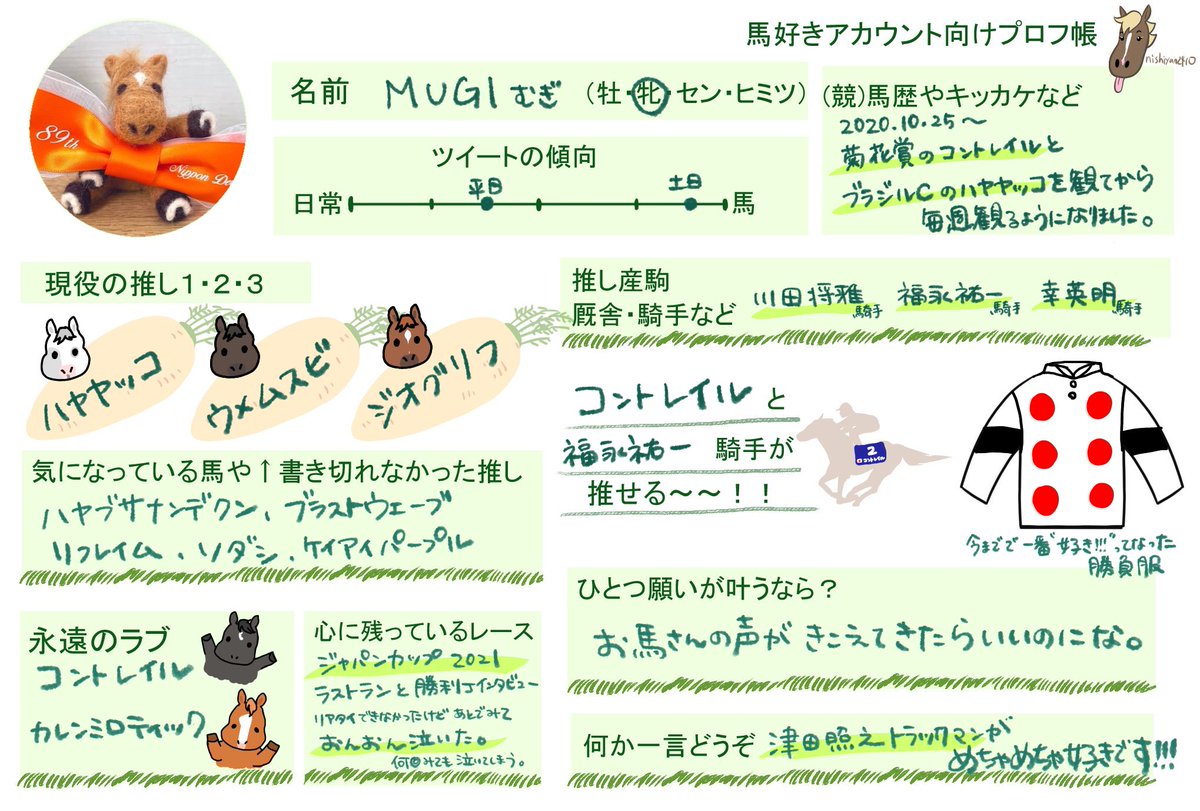 馬好きアカウント向けプロフ帳
nishiyan2410
89th
Nippon De
名前 MUGI むぎ (牡・牝・セン・ヒミツ)
ツイートの傾向
平日
土日
日常
馬
(競)馬歴やキッカケなど
2020.10.25〜
菊花賞のコントレイルと
ブラジルCのハヤヤッコを観てから
毎週観るようになりました。
現役の推し1・2・3
ハヤヤッコ
ウメムスビ
ジオグリフ
推し産駒
厩舎・騎手など
川田将雅騎手 福永祐一騎手 幸英明騎手
気になっている馬や↑書き切れなかった推し
ハヤブサナンデクン、ブラストウェーブ
リフレイム、ソダシ、ケイアイパープル
コントレイルと
福永祐一 騎手が
推せる〜〜!!
2
コントレイル
今までで一番"好き!!!"ってなった
勝負服
永遠のラブ
コントレイル
カレンミロティック
心に残っているレース
ジャパンカップ 2021
ラストランと勝利インタビュー
リアタイできなかったけどあとでみて
おんおん泣いた。
何回みても泣いてしまう。
ひとつ願いが叶うなら?
お馬さんの声がきこえてきたらいいのにな。
何か一言どうぞ 津田照之トラックマンが
めちゃめちゃ好きです!!!